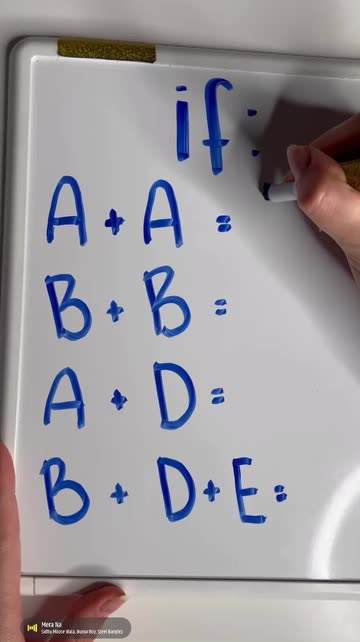 if:
A + A =
B + B =
A + D =
B + D + E =
Mera Na
Sidhu Moose Wala, Burna Boy, Steel Banglez